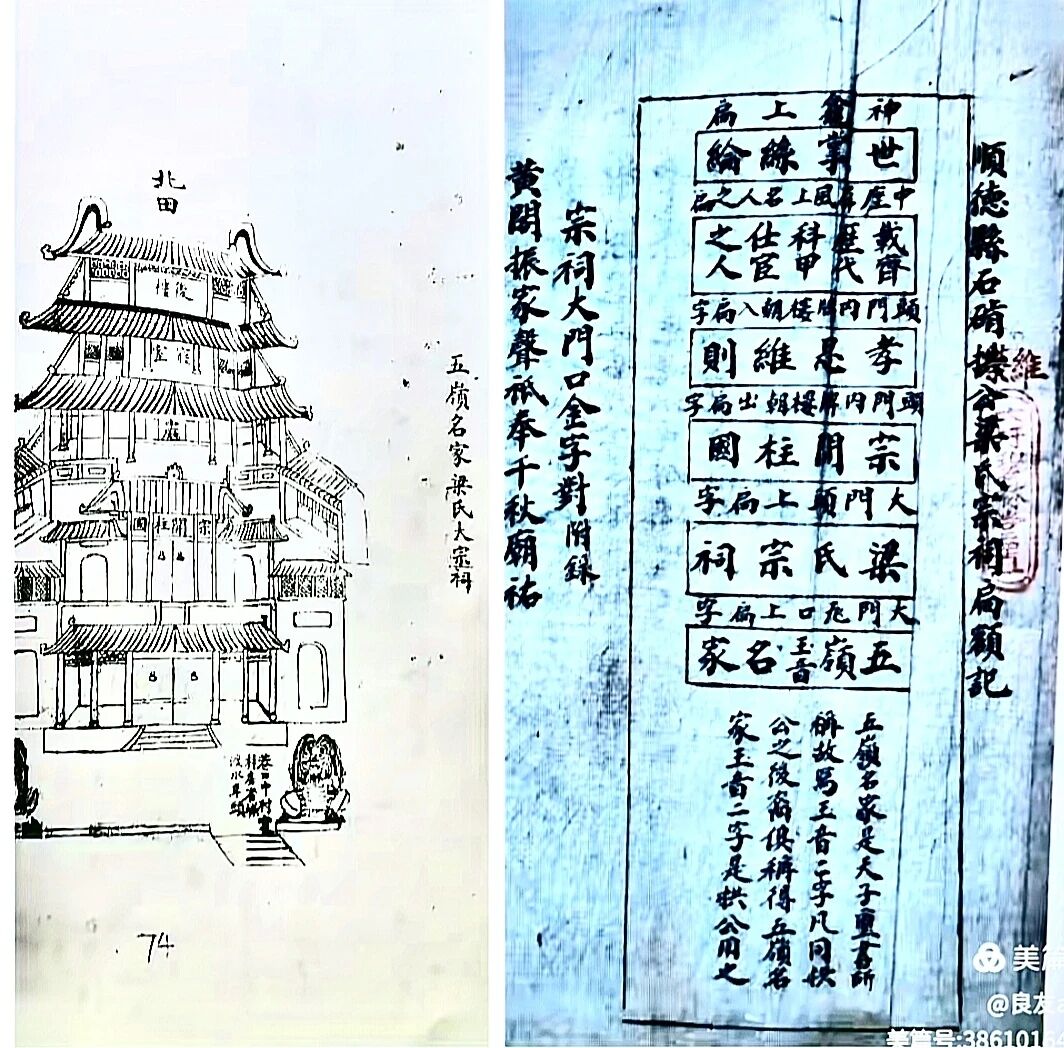 北田
後樓
五嶺名家梁氏大宗祠
宗開柱國
巷曰中村里
74
順德縣石碏㙺公梁氏宗祠扁額記
維
神龕上扁
世掌絲綸
中座屏風上名人之扁
載齊歷代科甲仕宦之人
頭門內牌樓朝入扁字
孝思維則
頭門內牌樓朝出扁字
宗開柱國
大門頭上扁字
梁氏宗祠
大門口上扁字
五嶺名家
玉音
五嶺名家是天子璽書所
稱故寫玉音二字凡同㙺
公之後裔俱稱得五嶺名
家玉音二字是㙺公用之
宗祠大門口金字對附錄
黃閣振家聲祇奉千秋廟祐
美篇
@良友
美篇号:386101